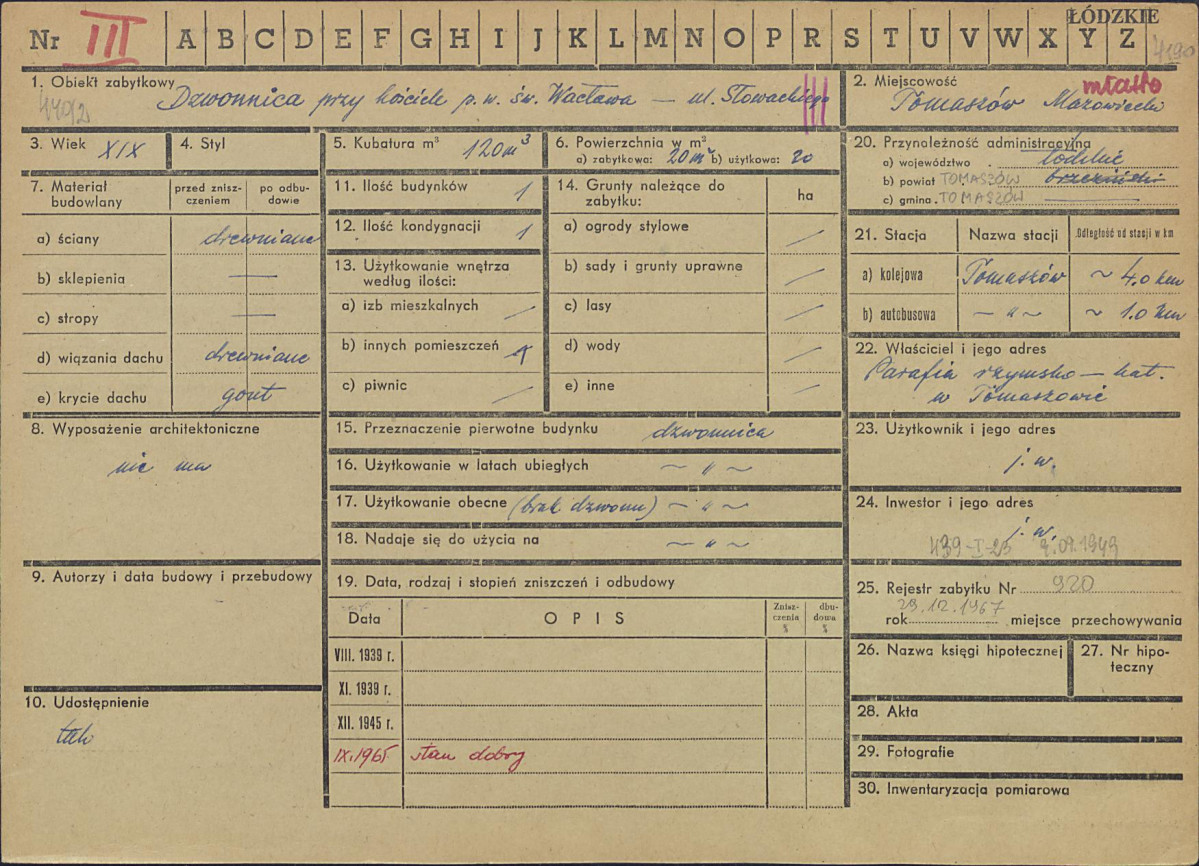 ŁÓDZKIE
Nr III A B C D E F G H I J K L M N O P R S T U V W X Y Z
4190
1. Obiekt zabytkowy
Dzwonnica przy kościele p.w. św. Wacława — ul. Słowackiego
2. Miejscowość
miasto
Tomaszów Mazowiecki
3. Wiek XIX
4. Styl
5. Kubatura m³ 120 m³
6. Powierzchnia w m²
a) zabytkowa: 20 m² b) użytkowa: 20
7. Materiał budowlany
przed znisz-
czeniem
po odbu-
dowie
a) ściany drewniane
b) sklepienia —
c) stropy —
d) wiązania dachu drewniane
e) krycie dachu gont
8. Wyposażenie architektoniczne
nie ma
9. Autorzy i data budowy i przebudowy
10. Udostępnienie
tak
11. Ilość budynków 1
12. Ilość kondygnacji 1
13. Użytkowanie wnętrza
według ilości:
a) izb mieszkalnych /
b) innych pomieszczeń
c) piwnic /
14. Grunty należące do
zabytku:
ha
a) ogrody stylowe /
b) sady i grunty uprawne /
c) lasy /
d) wody /
e) inne /
15. Przeznaczenie pierwotne budynku dzwonnica
16. Użytkowanie w latach ubiegłych ~ " ~
17. Użytkowanie obecne (brak dzwonu) ~ " ~
18. Nadaje się do użycia na ~ " ~
19. Data, rodzaj i stopień zniszczeń i odbudowy
Data
OPIS
Znisz-
czenia
%
dbu-
dowa
%
VIII. 1939 r.
XI. 1939 r.
XII. 1945 r.
IX.1965 stan dobry
20. Przynależność administracyjna
a) województwo łódzkie
b) powiat TOMASZÓW brzeziński
c) gmina TOMASZÓW
21. Stacja
Nazwa stacji
Odległość od stacji w km
a) kolejowa Tomaszów ~ 4.0 km
b) autobusowa ~ " ~ ~ 1.0 km
22. Właściciel i jego adres
Parafia rzymsko — kat.
w Tomaszowie
23. Użytkownik i jego adres
j. w.
24. Inwestor i jego adres
j. w.
439-I-23 9.09.1949
25. Rejestr zabytku Nr 920
29.12.1967
rok miejsce przechowywania
26. Nazwa księgi hipotecznej
27. Nr hipo-
teczny
28. Akta
29. Fotografie
30. Inwentaryzacja pomiarowa